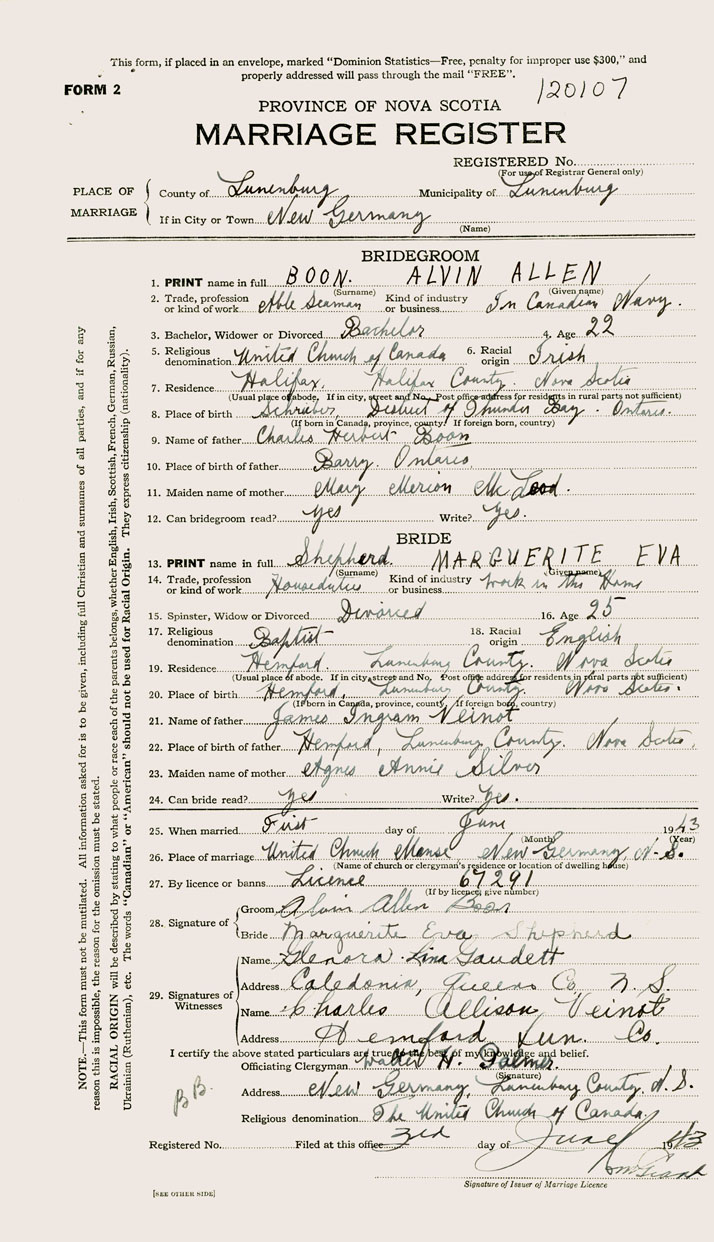 This form, if placed in an envelope, marked "Dominion Statistics—Free, penalty for improper use $300," and
properly addressed will pass through the mail "FREE".
FORM 2
120107
PROVINCE OF NOVA SCOTIA
MARRIAGE REGISTER
REGISTERED No.
(For use of Registrar General only)
PLACE OF MARRIAGE
County of Lunenburg Municipality of Lunenburg
If in City or Town New Germany
(Name)
BRIDEGROOM
1. PRINT name in full BOON. ALVIN ALLEN
(Surname) (Given name)
2. Trade, profession or kind of work Able Seaman Kind of industry or business In Canadian Navy.
3. Bachelor, Widower or Divorced Bachelor 4. Age 22
5. Religious denomination United Church of Canada 6. Racial origin Irish
7. Residence Halifax, Halifax County. Nova Scotia
(Usual place of abode. If in city, street and No. Post office address for residents in rural parts not sufficient)
8. Place of birth Schriber, District of Thunder Bay. Ontario.
(If born in Canada, province, county. If foreign born, country)
9. Name of father Charles Herbert Boon
10. Place of birth of father Barry. Ontario
11. Maiden name of mother Mary Merion McLeod.
12. Can bridegroom read? Yes Write? Yes.
BRIDE
13. PRINT name in full Shepherd. MARGUERITE EVA
(Surname) (Given name)
14. Trade, profession or kind of work Houseduties Kind of industry or business Work in the Home
15. Spinster, Widow or Divorced Divorced 16. Age 25
17. Religious denomination Baptist 18. Racial origin English
19. Residence Hemford. Lunenburg County. Nova Scotia
(Usual place of abode. If in city, street and No. Post office address for residents in rural parts not sufficient)
20. Place of birth Hemford, Lunenburg County. Nova Scotia.
(If born in Canada, province, county If foreign born, country)
21. Name of father James Ingram Veinot
22. Place of birth of father Hemford, Lunenburg County. Nova Scotia.
23. Maiden name of mother Agnes Annie Silver
24. Can bride read? Yes Write? Yes.
25. When married First day of June 1943
(Month) (Year)
26. Place of marriage United Church Manse New Germany, N.S.
(Name of church or clergyman's residence or location of dwelling house)
27. By licence or banns Licence 67291
(If by licence, give number)
28. Signature of
Groom Alvin Allen Boon
Bride Marguerite Eva Shepherd
29. Signatures of Witnesses
Name Glenora Lina Gaudett
Address Caledonia, Queens Co N.S.
Name Charles Allison Veinot
Address Hemford Lun. Co.
I certify the above stated particulars are true to the best of my knowledge and belief.
Officiating Clergyman Walter H. Palmer.
(Signature)
Address New Germany, Lunenburg County. N.S.
Religious denomination The United Church of Canada.
B B.
Registered No. Filed at this office 3rd day of June 1943
Signature of Issuer of Marriage Licence
[SEE OTHER SIDE]
NOTE.—This form must not be mutilated. All information asked for is to be given, including full Christian and surnames of all parties, and if for any
reason this is impossible, the reason for the omission must be stated.
RACIAL ORIGIN will be described by stating to what people or race each of the parents belongs, whether English, Irish, Scottish, French, German, Russian,
Ukrainian (Ruthenian), etc. The words "Canadian" or "American" should not be used for Racial Origin. They express citizenship (nationality).